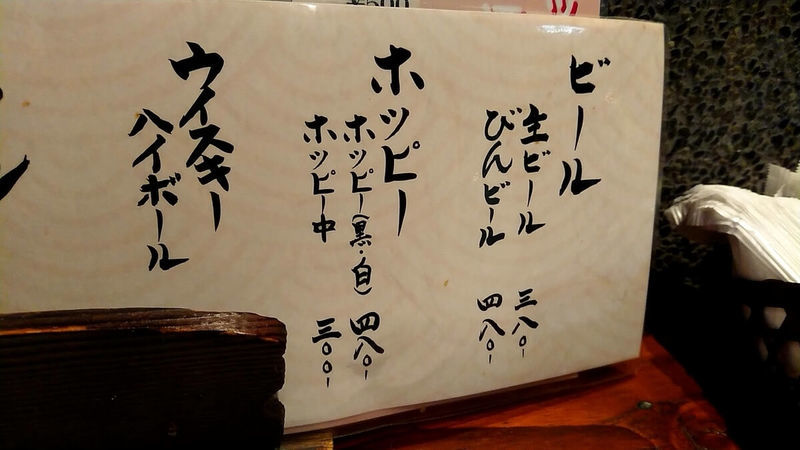 ビール
生ビール 三八〇-
びんビール 四八〇-
ホッピー
ホッピー(黒・白) 四八〇-
ホッピー中 三〇〇-
ウイスキー
ハイボール